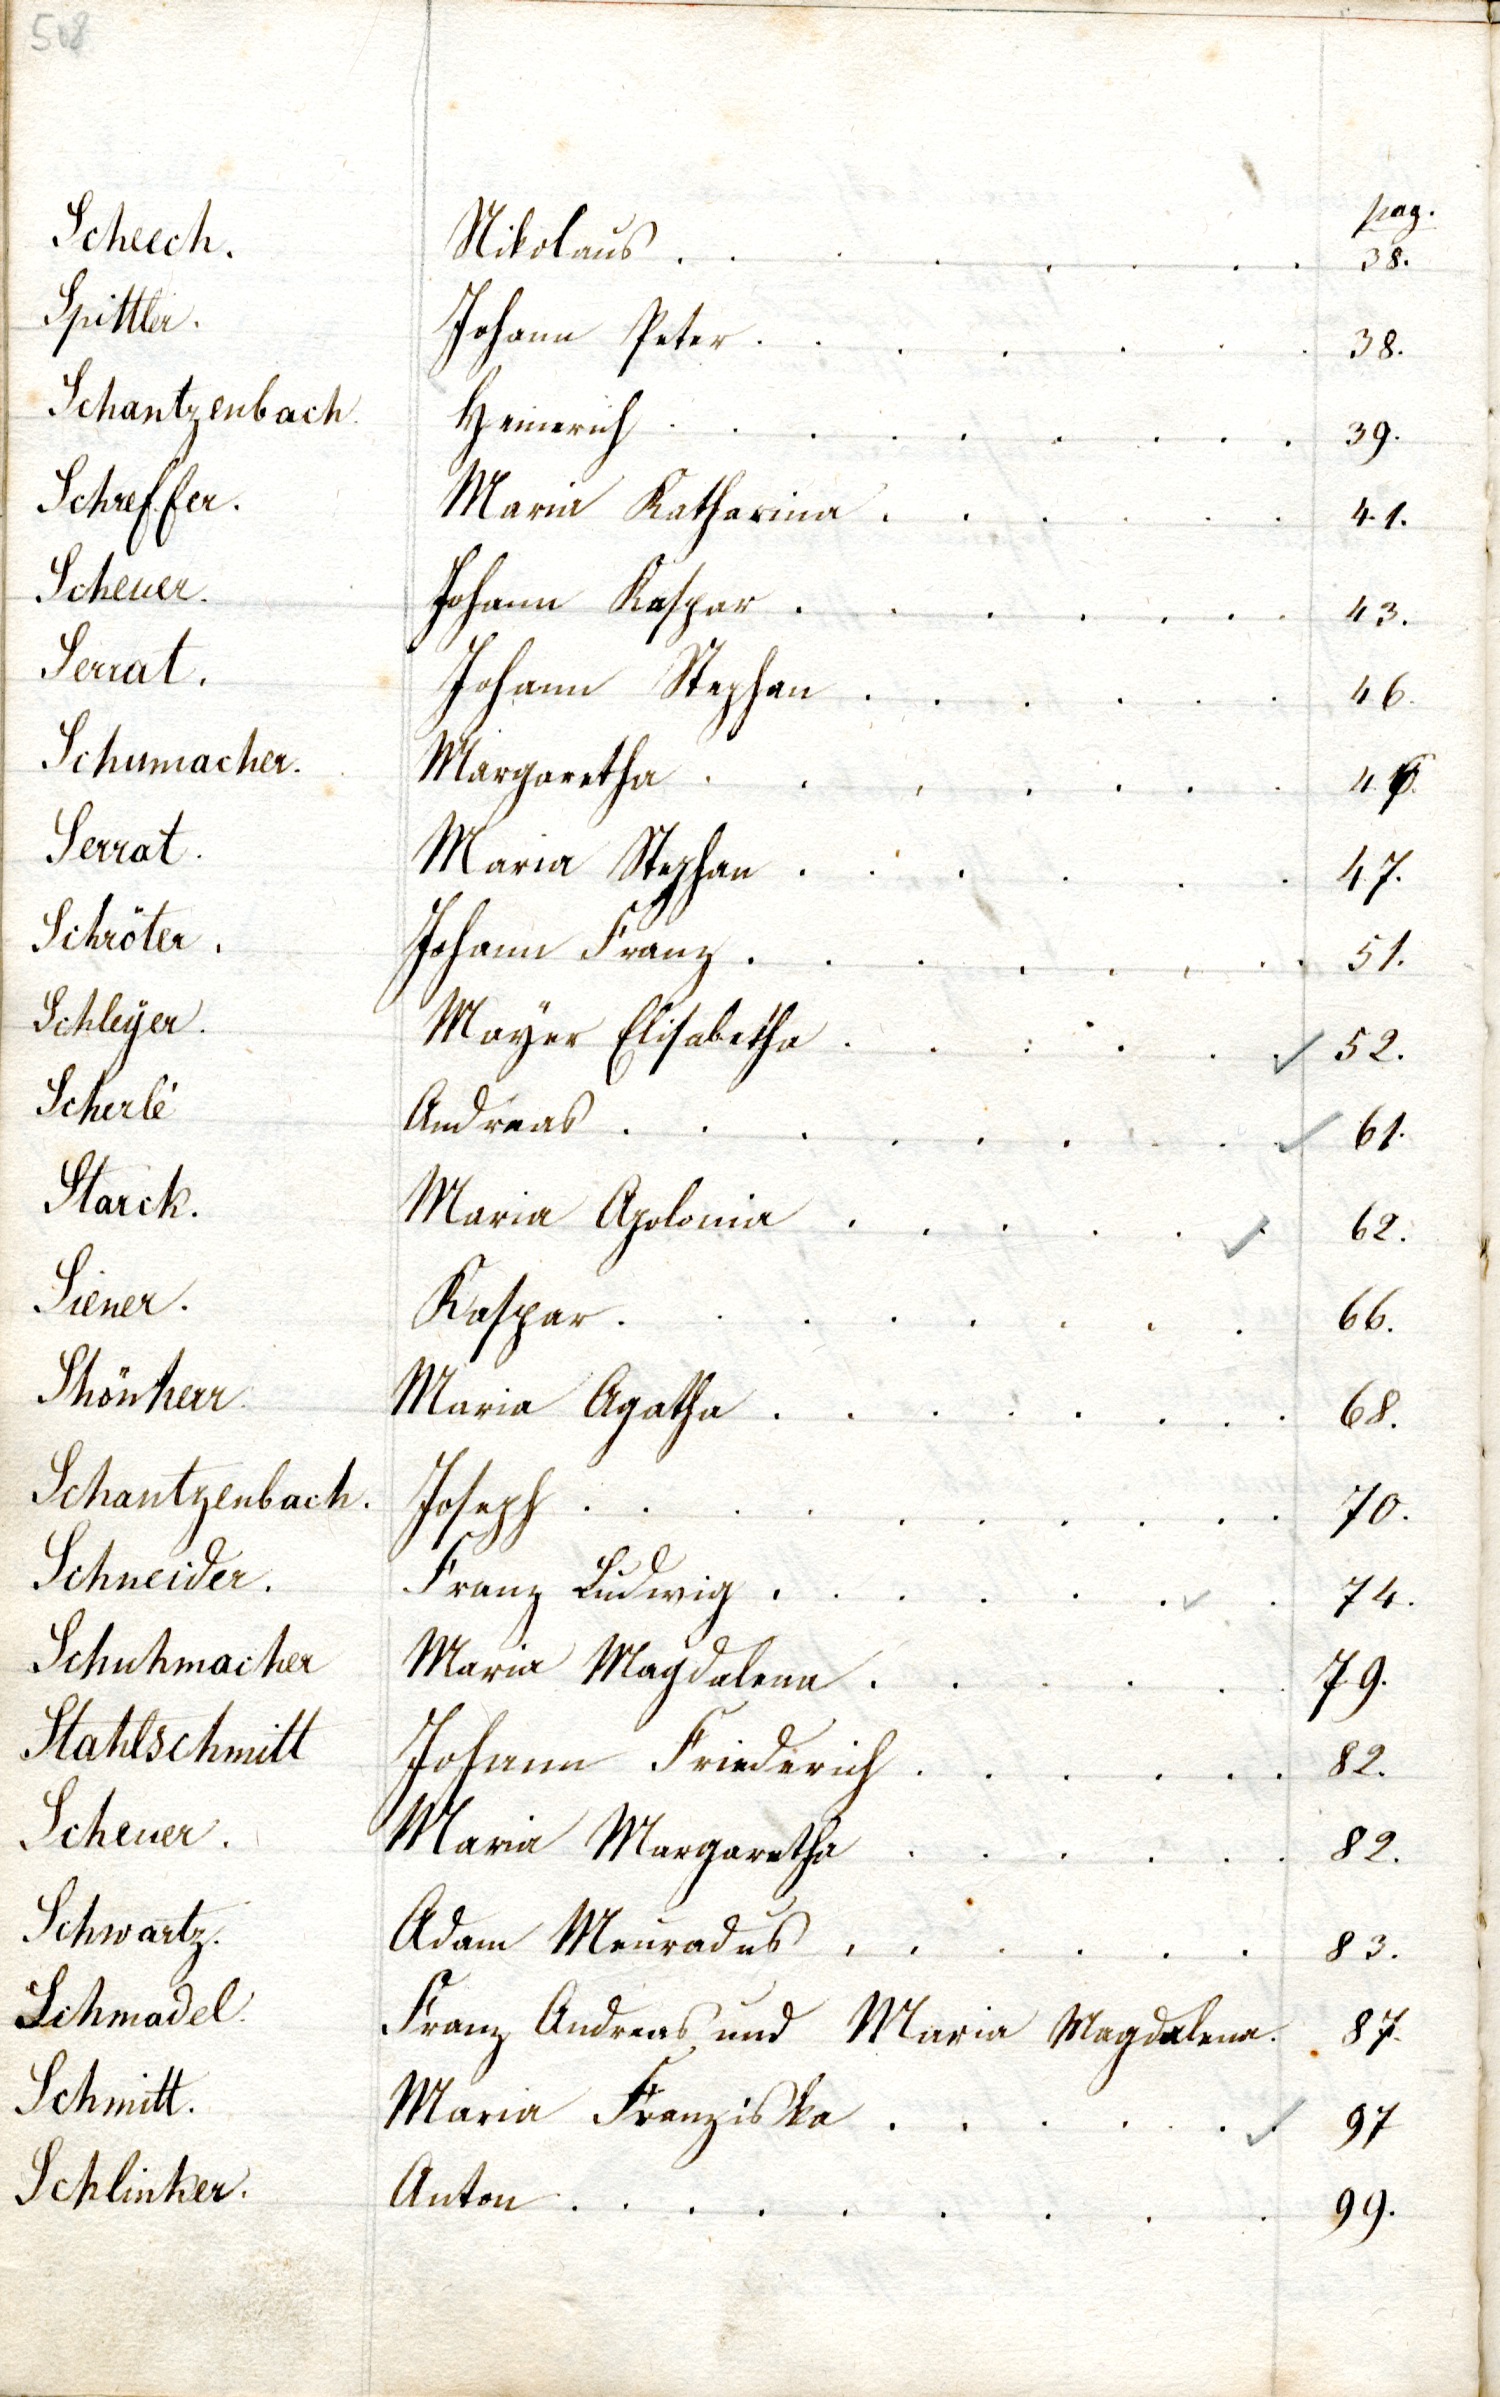 508
pag.
Scheech. Nikolaus . . . . . . . . 38.
Spittler. Johann Peter . . . . . . . 38.
Schantzenbach. Heinerich . . . . . . . . 39.
Schreffer. Maria Katharina . . . . . . 41.
Scheuer. Johann Kaspar . . . . . . . 43.
Serrat. Johann Stephan . . . . . . 46.
Schumacher. Margaretha . . . . . . . 46.
Serrat. Maria Stephan . . . . . . 47.
Schröter. Johann Franz . . . . . . . 51.
Schleÿer. Mayer Elisabetha . . . . . ✓ 52.
Scherlé Andreas . . . . . . . ✓ 61.
Starck. Maria Apolonia . . . . . ✓ 62.
Siener. Kaspar . . . . . . . . 66.
Shönherr. Maria Agatha . . . . . . . 68.
Schantzenbach. Joseph . . . . . . . . 70.
Schneider. Franz Ludwig . . . . . ✓ . 74.
Schuhmacher Maria Magdalena . . . . . . 79.
Stahlschmitt Johann Friederich . . . . . . 82.
Scheuer. Maria Margaretha . . . . . . 82.
Schwartz. Adam Menradus . . . . . . 83.
Schmadel. Franz Andreas und Maria Magdalena. 87.
Schmitt. Maria Franziska . . . . . ✓ 97
Schlinker. Anton . . . . . . . . 99.